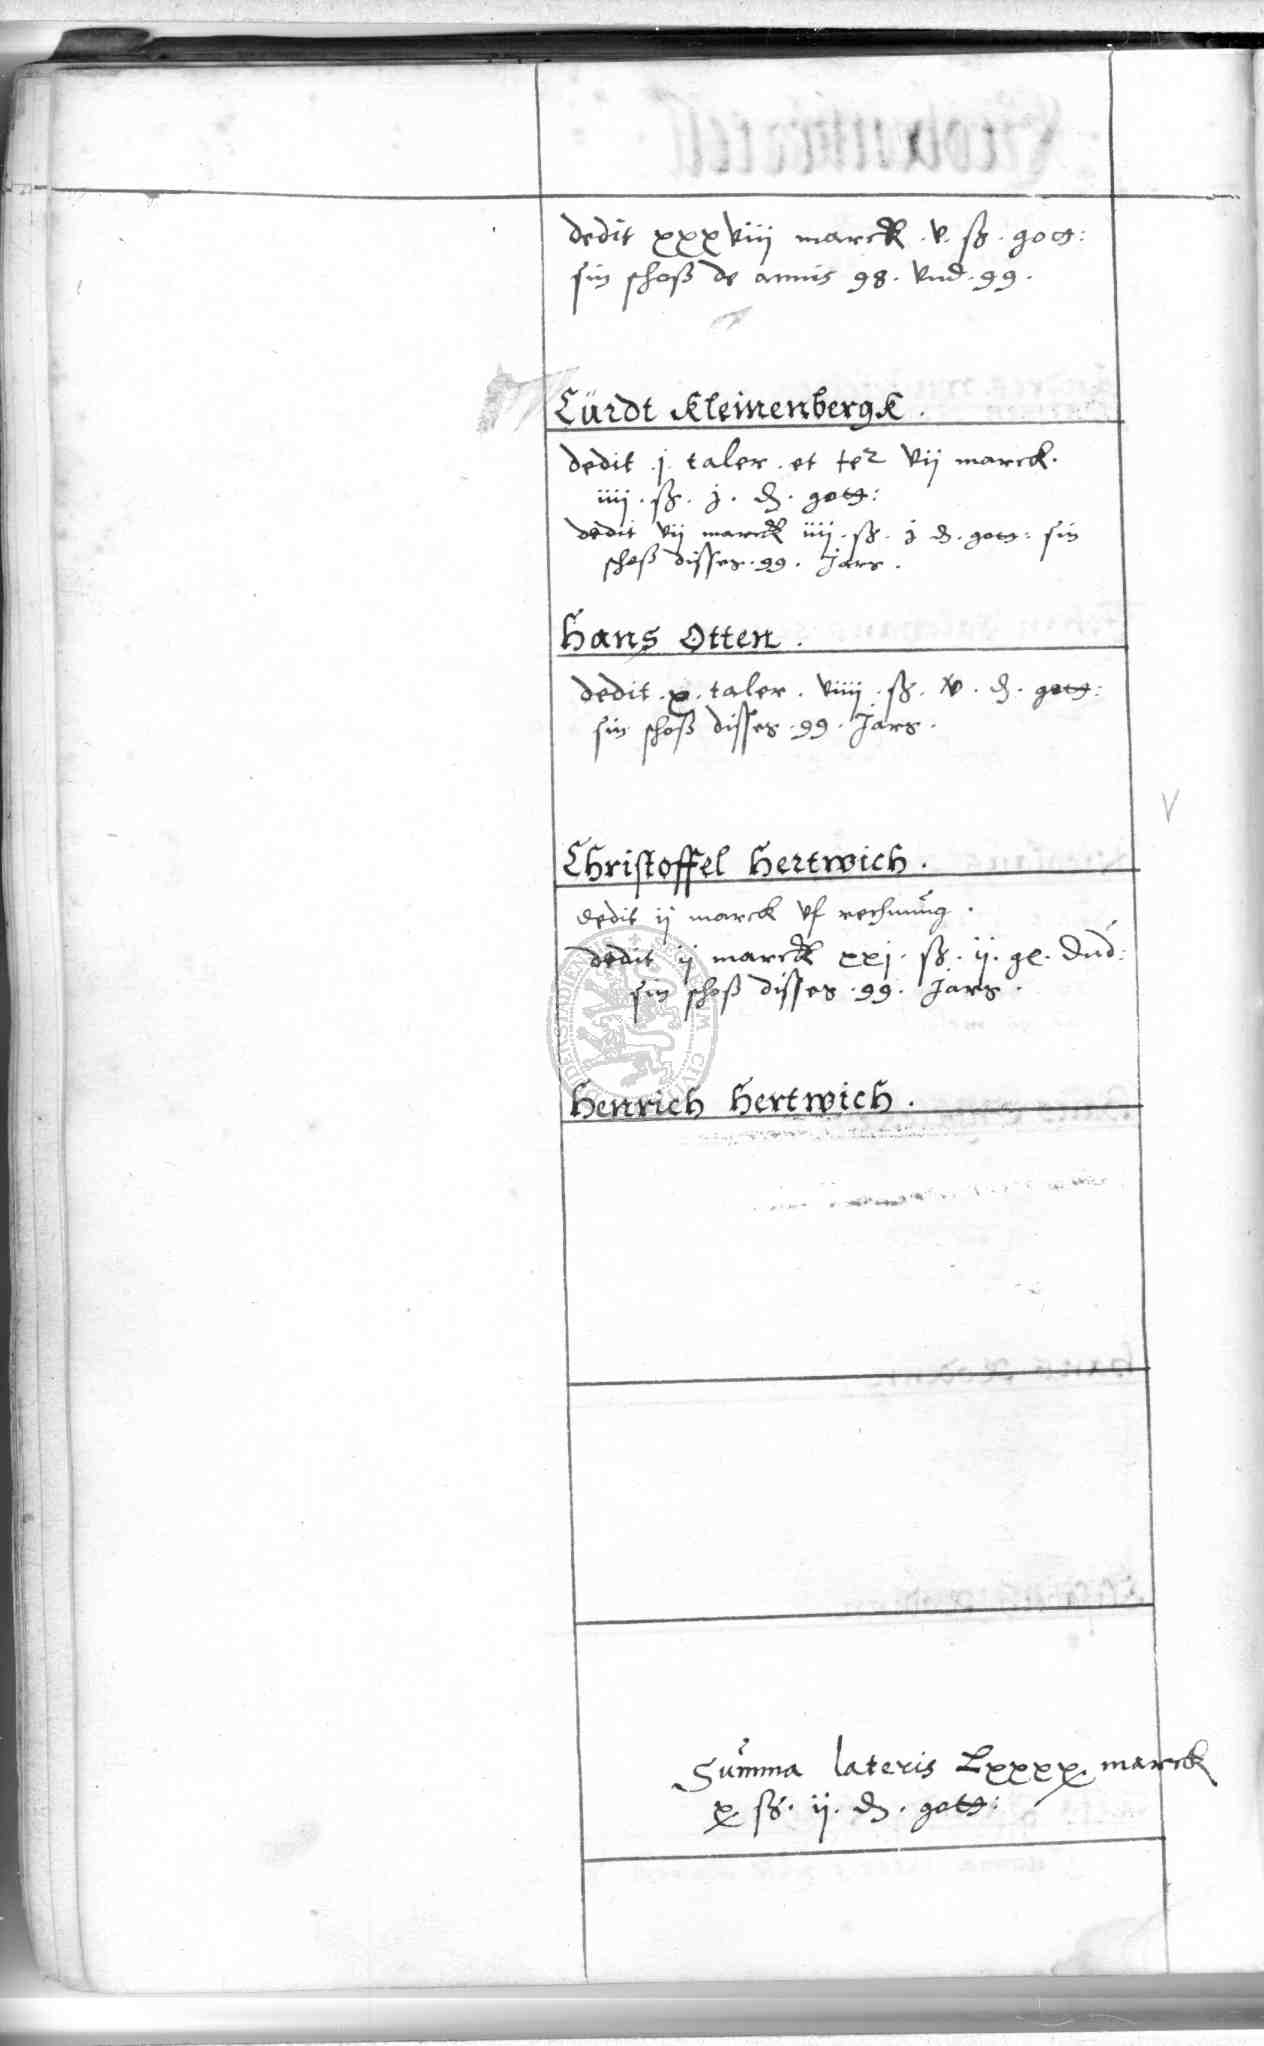 dedit xxxviij marck . v . ß . gott:
sin schoß de annis 98 . vnd . 99 .
Cürdt Kleinenbergk .
dedit . j . taler . et ter vij marck .
iiij . ß . j . d . gott:
dedit vij marck iiij . ß . j d . gott: sin
schoß disses . 99 . Jars .
Hans Otten .
dedit . x . taler . viiij . ß . v . d . gott:
sin schoß disses . 99 . Jars .
Christoffel Hertwich .
dedit ij marck vf rechnung .
dedit ij marck xxj . ß . ij . gl . dud:
sin schoß disses . 99 . Jars .
Henrich Hertwich .
Summa lateris Lxxxx marck
x ß . ij . d . gott: